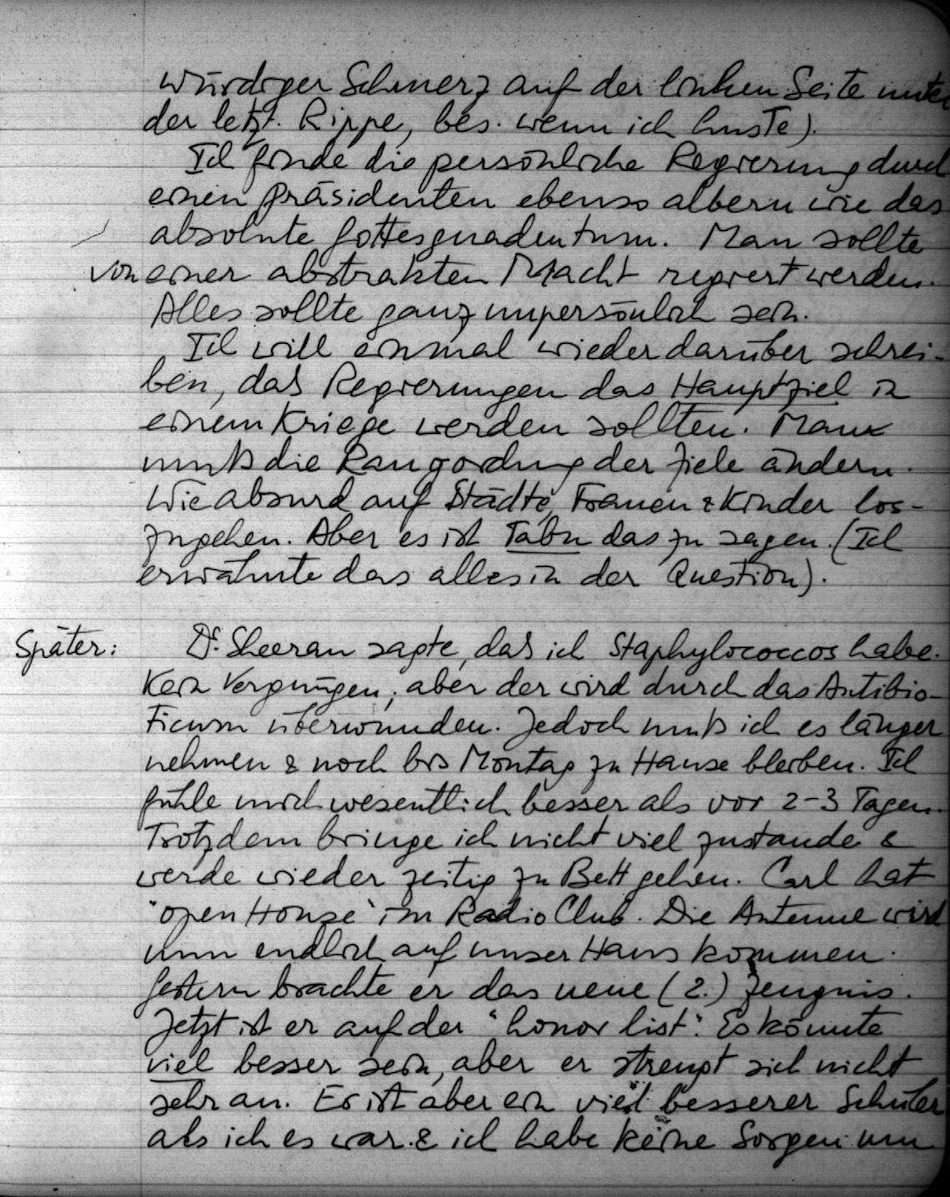 würdiger Schmerz auf der linken Seite unter
der letzt. Rippe, bes. wenn ich huste).
Ich finde die persönliche Regierung durch
einen Präsidenten ebenso albern wie das
absolute Gottesgnadentum. Man sollte
von einer abstrakten Macht regiert werden.
Alles sollte ganz unpersönlich sein.
Ich will einmal wieder darüber schrei-
ben, das Regierungen das Hauptziel in
einem Kriege werden sollten. Man
muß die Rangordnung der Ziele ändern.
Wie absurd auf Städte, Frauen & Kinder los-
zugehen. Aber es ist Tabu das zu sagen. (Ich
erwähnte das alles in der Question).
Später: Dr. Sheeran sagte, das ich Staphylococcos habe.
Kein Vergnügen, aber der wird durch das Antibio-
ticum überwunden. Jedoch muß ich es länger
nehmen & noch bis Montag zu Hause bleiben. Ich
fühle mich wesentlich besser als vor 2-3 Tagen.
Trotzdem bringe ich nicht viel zustande &
werde wieder zeitig zu Bett gehen. Carl hat
"open House" im Radio Club. Die Antenne wird
nun endlich auf unser Haus kommen.
Gestern brachte er das neue (2.) Zeugnis.
Jetzt ist er auf der "honor list". Es könnte
viel besser sein, aber er strengt sich nicht
sehr an. Er ist aber ein viel besserer Schüler
als ich es war & ich habe keine Sorgen um